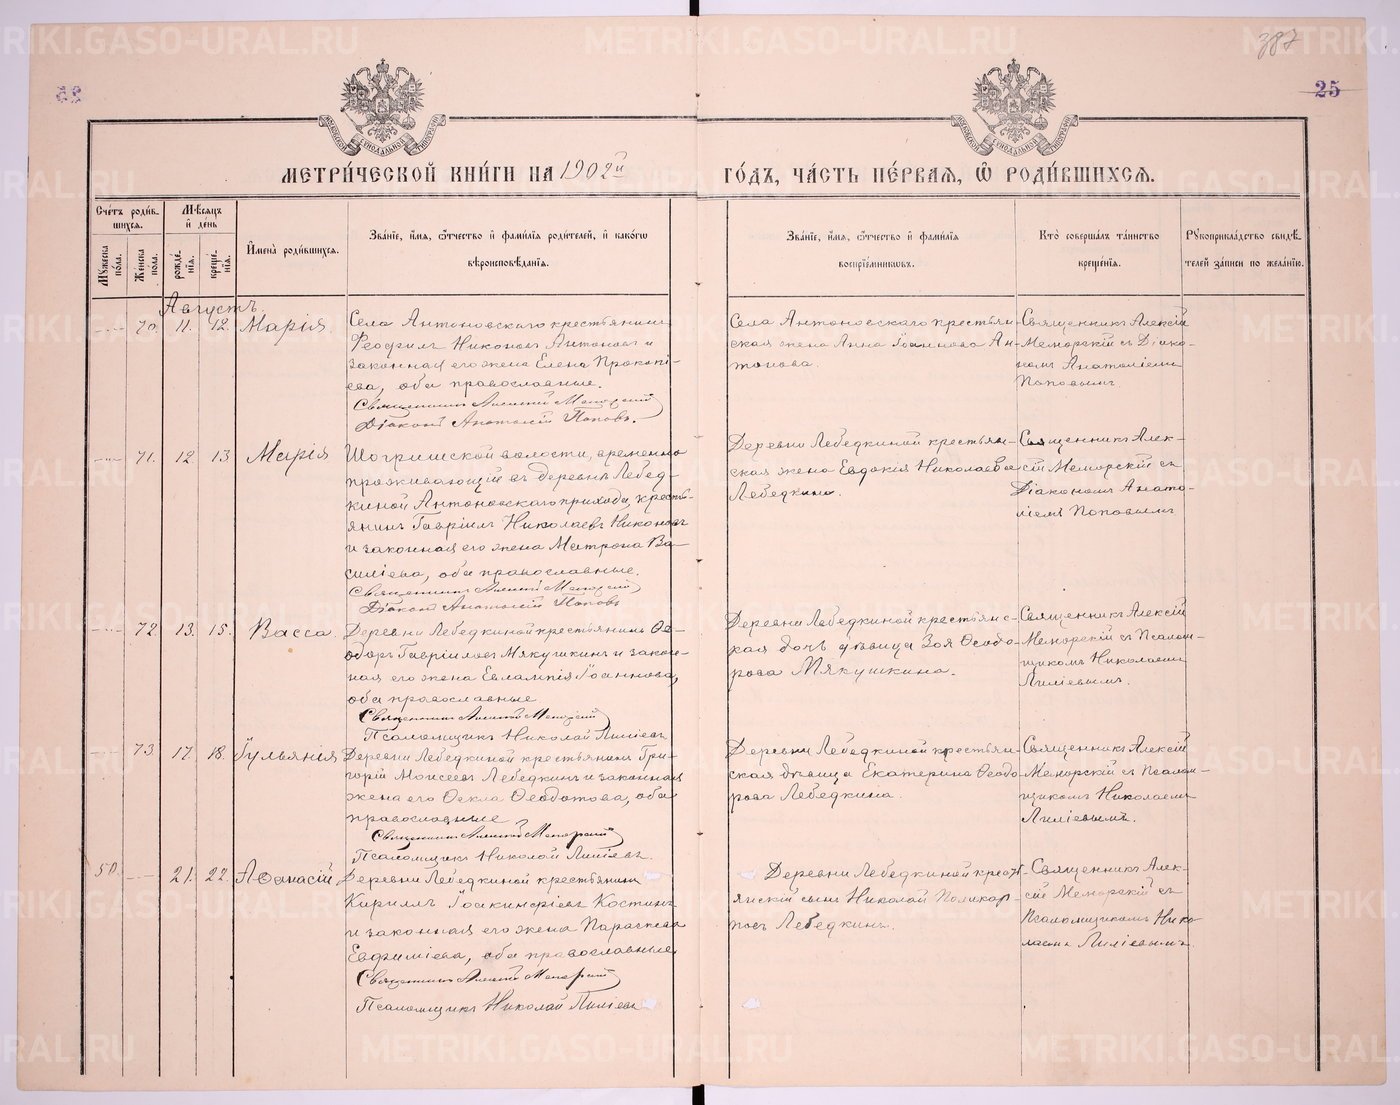 387
25
МЕТРИ́ЧЕСКОЙ КНИ́ГИ НА 1902й ГО́ДЪ, ЧА́СТЬ ПЕ́РВАЯ, Ѿ РОДИ́ВШИХСЯ.
Сче́тъ роди́вшихся.
Му́жеска по́ла.
Же́нска по́ла.
Мѣ́сяцъ и де́нь
рожде́нїя.
креще́нїя.
И̓мена̀ роди́вшихся.
Зва́нїе, и̓́мя, ѻ҆́тчество и҆ фами́лїя роди́телей, и҆ како́гѡ
вѣроисповѣ́данїя.
Зва́нїе, и̓́мя, ѻ҆́тчество и҆ фами́лїя
воспрїе́мниковъ.
Кто̀ соверша́лъ та́инство
креще́нїя.
Рꙋкоприкла́дство свидѣ́-
телей за́писи по жела́нїю.
Августъ.
70. 11. 12. Марія.
Села Антоновскаго крестьянинъ
Феофилъ Никоновъ Антоновъ и
законная его жена Елена Прокопі-
ева, оба православные.
Священникъ Алексій Меморскій
Діаконъ Анатолій Поповъ.
Села Антоновскаго крестьян-
ская жена Анна Іоаннова Ан-
тонова.
Священникъ Алексій
Меморскій съ Діако-
номъ Анатоліемъ
Поповымъ.
71. 12. 13 Марія
Шогришской волости, временно
проживающій въ деревнѣ Лебед-
киной Антоновскаго прихода, кресть-
янинъ Гавріилъ Николаевъ Никоновъ
и законная его жена Матрона Ва-
силіева, оба православные.
Священникъ Алексій Меморскій
Діаконъ Анатолій Поповъ
Деревни Лебедкиной крестьян-
ская жена Евдокія Николаева
Лебедкина.
Священникъ Алек-
сій Меморскій съ
Діакономъ Анато-
ліемъ Поповымъ
72. 13. 15. Васса
Деревни Лебедкиной крестьянинъ Ѳе-
одоръ Гавріиловъ Мякушкинъ и закон-
ная его жена Евлампія Іоаннова,
оба православные
Священникъ Алексій Меморскій
Псаломщикъ Николай Лиліевъ
Деревни Лебедкиной крестьянс-
кая дочь дѣвица Зоя Ѳеодо-
рова Мякушкина.
Священникъ Алексій
Меморскій съ Псалом-
щикомъ Николаемъ
Лиліевымъ.
73 17 18. Іульянія
Деревни Лебедкиной крестьянинъ Гри-
горій Моисеевъ Лебедкинъ и законная
жена его Ѳекла Ѳеодотова, оба
православные
Священникъ Алексій Меморскій
Псаломщикъ Николай Лиліевъ.
Деревни Лебедкиной крестьян-
ская дѣвица Екатерина Ѳеодо-
рова Лебедкина.
Священникъ Алексій
Меморскій съ Псалом-
щикомъ Николаемъ
Лиліевымъ.
50. 21. 22. Аѳанасій
Деревни Лебедкиной крестьянинъ
Кириллъ Іоакинфіевъ Костинъ
и законная его жена Параскева
Евфиміева, оба православные
Священникъ Алексій Меморскій
Псаломщикъ Николай Лиліевъ
Деревни Лебедкиной кресть-
янскій сынъ Николай Поликар-
повъ Лебедкинъ.
Священникъ Алек-
сій Меморскій съ
Псаломщикомъ Нико-
лаемъ Лиліевымъ.